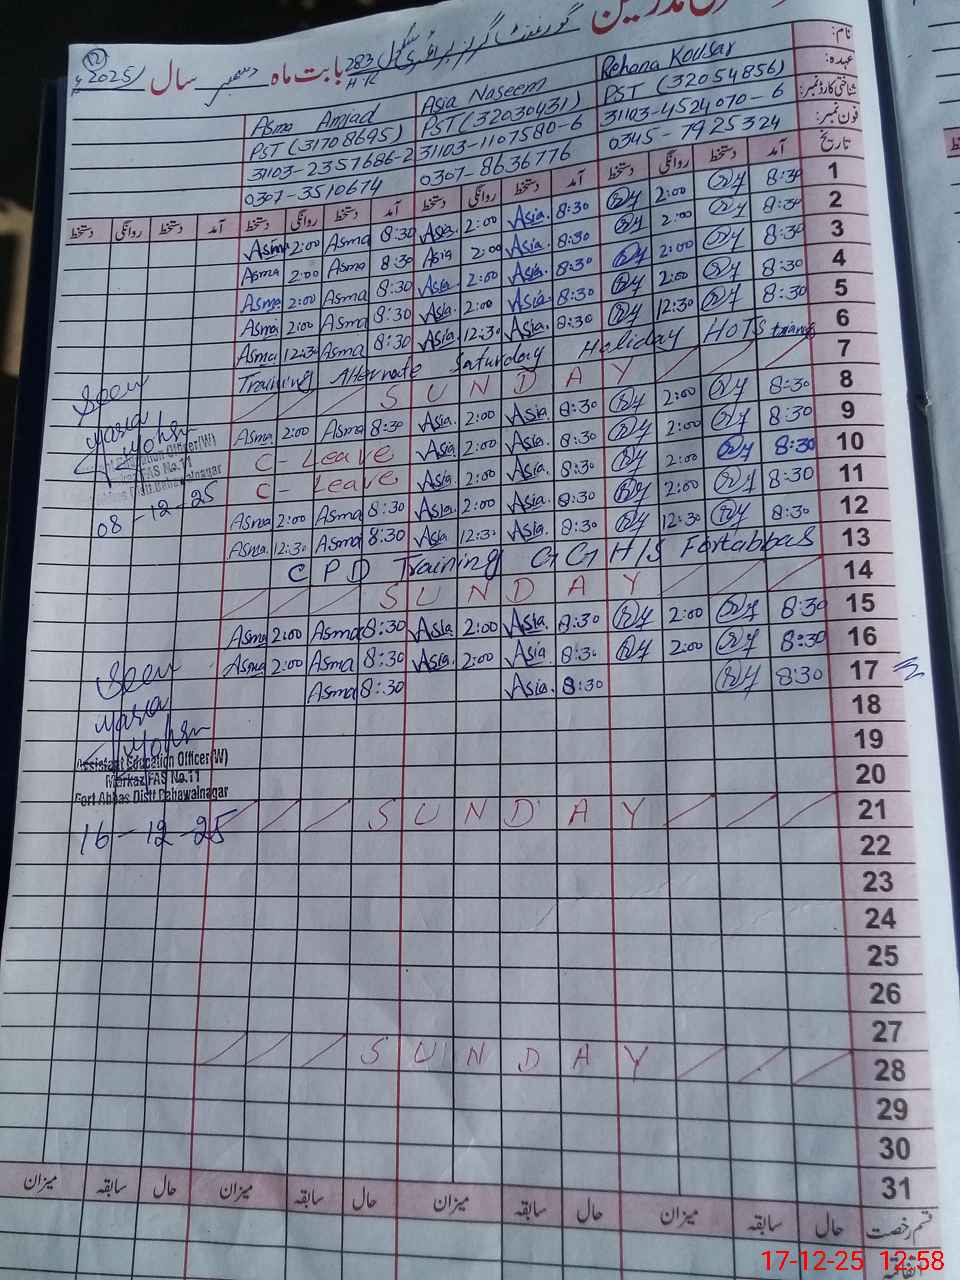 گورنمنٹ گرلز پرائمری سکول 283
H-R
بابت ماہ دسمبر سال 2025ء
(12)
نام:
Asma Amjad Asia Naseem Rehana Kousar
عہدہ:
PST (31708695) PST (32030431) PST (32054856)
شناختی کارڈ نمبر:
31103-2357686-2 31103-1107580-6 31103-4524070-6
فون نمبر:
0307-3510674 0307-8636776 0345-7925324
تاریخ
آمد دستخط روانگی دستخط آمد دستخط روانگی دستخط آمد دستخط روانگی دستخط آمد دستخط روانگی دستخط
Asma 2:00 Asma 8:30 Asia. 2:00 Asia. 8:30 2:00 8:30 1
Asma 2:00 Asma 8:30 Asia 2:00 Asia. 8:30 2:00 8:30 2
Asma 2:00 Asma 8:30 Asia. 2:00 Asia. 8:30 2:00 8:30 3
Asma 2:00 Asma 8:30 Asia. 2:00 Asia. 8:30 2:00 8:30 4
Asma 12:30 Asma 8:30 Asia. 12:30 Asia. 8:30 12:30 8:30 5
Training Alternate Saturday Holiday HOTS 6
S U N D A Y 7
Asma 2:00 Asma 8:30 Asia. 2:00 Asia. 8:30 2:00 8:30 8
C - Leave Asia. 2:00 Asia. 8:30 2:00 8:30 9
C - Leave Asia. 2:00 Asia. 8:30 2:00 8:30 10
Asma 2:00 Asma 8:30 Asia. 2:00 Asia. 8:30 2:00 8:30 11
Asma. 12:30 Asma 8:30 Asia 12:30 Asia. 8:30 12:30 8:30 12
C P D Training G G H/S Fortabbas 13
S U N D A Y 14
Asma 2:00 Asma 8:30 Asia. 2:00 Asia. 8:30 2:00 8:30 15
Asma 2:00 Asma 8:30 Asia. 2:00 Asia. 8:30 2:00 8:30 16
Asma 8:30 Asia. 8:30 8:30 17
18
19
20
S U N D A Y 21
22
23
24
25
26
27
S U N D A Y 28
29
30
31
Seen
Education Officer(W)
Markaz FAS No.11
Abbas Distt.Bahawalnagar
08-12-25
Seen
Assistant Education Officer(W)
Markaz FAS No.11
Fort Abbas Distt Bahawalnagar
16-12-25
قسم رخصت حال سابقہ میزان حال سابقہ میزان حال سابقہ میزان حال سابقہ میزان
17-12-25 12:58